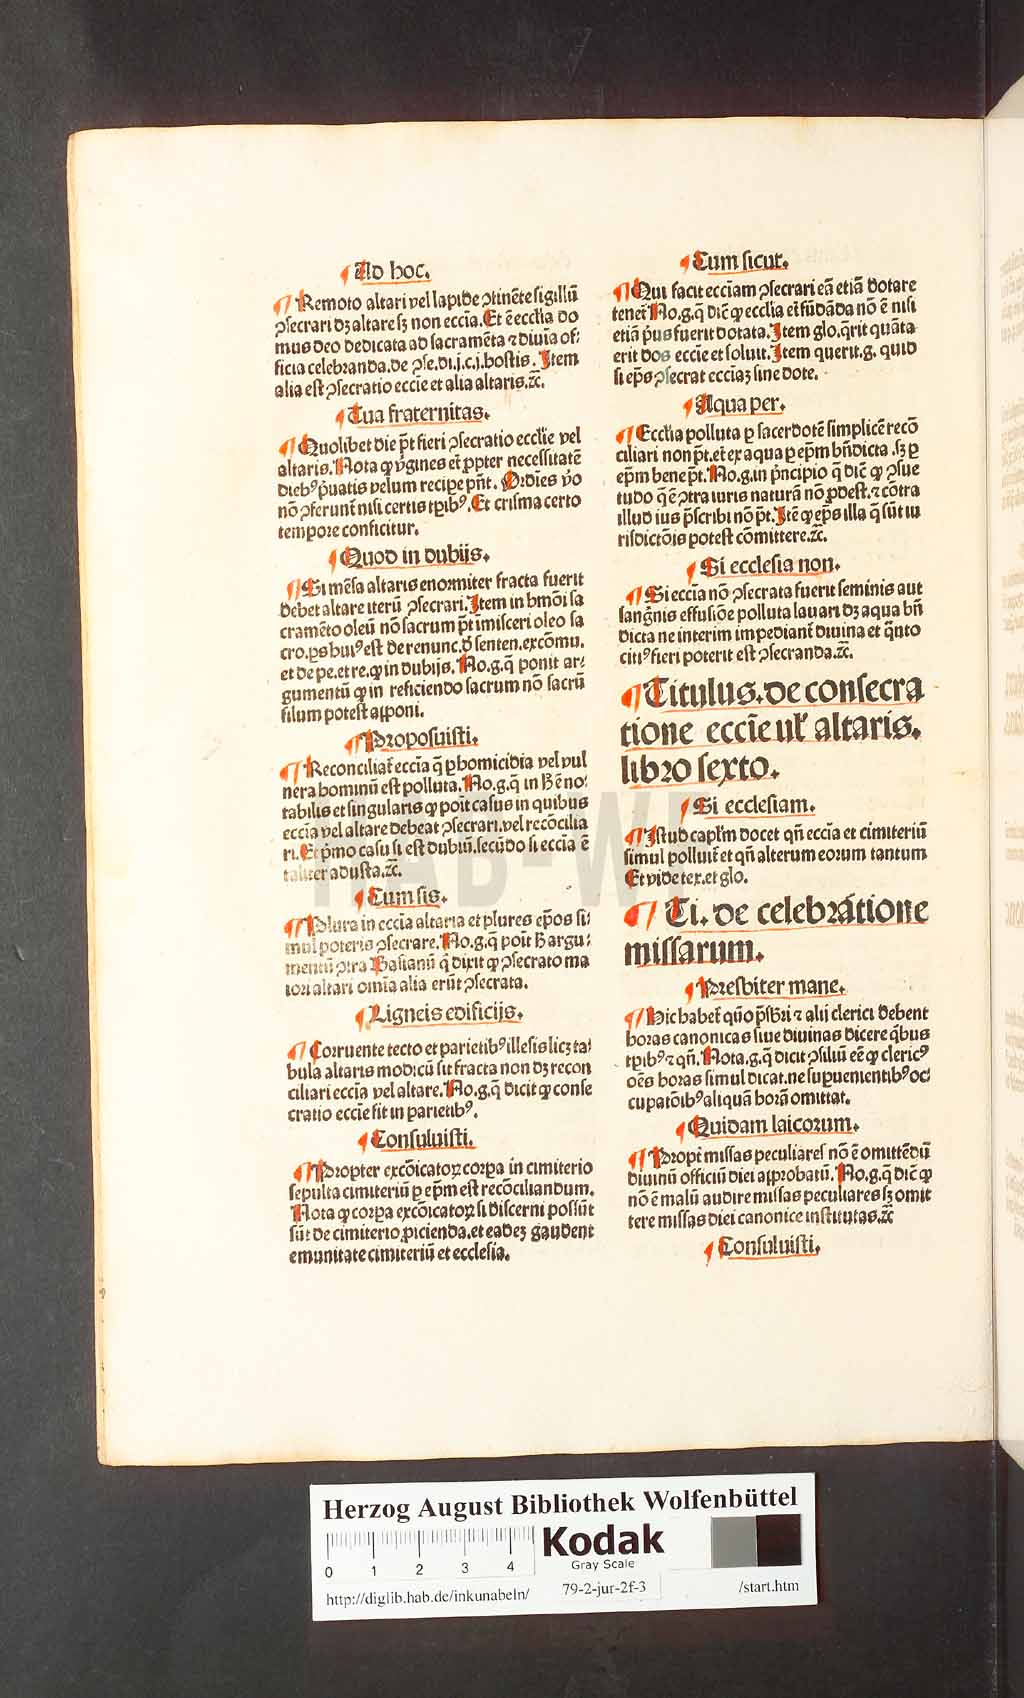 ¶ Ad hoc.
¶ Remoto altari vel lapide ꝯtinẽte sigillũ
ꝯsecrari dꝫ altare sꝫ non ecc̄ia. Et ẽ eccl̓ia do
mus deo dedicata ad sacramẽta ⁊ diuĩa of⸗
ficia celebranda. de ꝯse. di. j. c. j. hostis. Item
alia est ꝯsecratio eccie et alia altaris. ⁊c̃.
¶ Tua fraternitas.
¶ Quolibet die p̃t fieri ꝯsecratio eccl̓ie vel
altaris. Nota ꝙ v̓gines et̃ ꝓpter necessitatẽ
diebꝰ p̓uatis velum recipe pñt. Ordĩes v̓o
nõ ꝯferunt̃ nisi certis tꝑibꝰ. Et crisma certo
tempore conficitur.
¶ Quod in dubijs.
¶ Si mẽsa altaris enormiter fracta fuerit
debet altare iterũ ꝯsecrari. Item in hmõi sa
cramẽto oleũ nõ sacrum p̃t imisceri oleo sa
cro. ꝑs huiꝰ est de renunc. ð senten. excõmu.
et de pe. et re. ꝙ in dubijs. No. g. q̃ ponit ar⸗
gumentũ ꝙ in reficiendo sacrum nõ sacrũ
filum potest apponi.
¶ Proposuisti.
¶ Reconciliat̃ ecc̄ia q̃ ꝑ homicidia vel vul
nera hominũ est polluta. No. g. q̃ in H ẽ no⸗
tabilis et singularis ꝙ poĩt casus in quibus
ecc̄ia vel altare debeat ꝯsecrari. vel recõcilia
ri. Et p̓mo casu si est dubiũ. secũdo si eccia ẽ
taliter adusta. ⁊c̃.
¶ Cum sis.
¶ Plura in eccia altaria et plures ep̃os si⸗
mul poteris ꝯsecrare. No. g. q̃ poĩt H argu⸗
mentũ ꝯtra Basianũ q̃ dixit ꝙ ꝯsecrato ma
iori altari om̃ia alia erũt ꝯsecrata.
¶ Ligneis edificijs.
¶ Corruente tecto et parietibꝰ illesis licꝫ ta⸗
bula altaris modicũ sit fracta non dꝫ recon
ciliari ecc̄ia vel altare. No. g. q̃ dicit ꝙ conse
cratio ecc̄ie fit in parietibꝰ.
¶ Consuluisti.
¶ Propter excõicatoꝝ corpa in cimiterio
sepulta cimiteriũ ꝑ ep̃m est recõciliandum.
Nota ꝙ corꝑa excõicatoꝝ si discerni possũt
sũt de cimiterio ꝓicienda. et eadẽ gaudent
emunitate cimiteriũ et ecclesia.
¶ Cum sicut.
¶ Qui facit ecc̄iam ꝯsecrari eã etiã dotare
tenet̃ No. g. q̃ dic̃ ꝙ eccl̓ia et̃ fũdãda nõ ẽ nisi
etiã p̓us fuerit dotata. Item glo. q̃rit quãta
erit dos eccie et soluit. Item querit. g. quid
si ep̃s ꝯsecrat ecc̄iaꝫ sine dote.
¶ Aqua per.
¶ Eccl̓ia polluta ꝑ sacerdotẽ simplicẽ recõ
ciliari non p̃t. et ex aqua ꝑ ep̃m bñdicta. sꝫ ꝑ
ep̃m bene p̃t. No. g. in p̓ncipio q̃ dic̃ ꝙ ꝯsue
tudo q̃ ẽ ꝯtra iuris naturã nõ ꝓdest. ⁊ cõtra
illud ius p̃scribi nõ p̃t. Itẽ ꝙ ep̃s illa q̃ sũt iu
risdictõis potest cõmittere. ⁊c̃.
¶ Si ecclesia non.
¶ Si ecc̄ia nõ ꝯsecrata fuerit seminis aut
sang̃nis effusiõe polluta lauari dꝫ aqua bñ
dicta ne interim impediant̃ diuina et q̃nto
citiꝰ fieri poterit est ꝯsecranda. ⁊c̃.
¶ Titulus. de consecra
tione ecc̄ie ul̓ altaris.
libro sexto.
¶ Si ecclesiam.
¶ Istud capl̓m docet qñ ecc̄ia et cimiteriũ
simul polluit̃ et qñ alterum eorum tantum
Et vide tex. et glo.
¶ Ti. de celebrátione
missarum.
¶ Presbiter mane.
¶ Hic habet̃ qũo p̃sb̓ri ⁊ alij clerici debent
horas canonicas siue diuinas dicere q̃bus
tꝑibꝰ ⁊ qñ. Nota. g. q̃ dicit ꝯsiliũ eẽ ꝙ clericꝰ
oẽs horas simul dicat. ne supuenientibꝰ oc⸗
cupatõibꝰ aliquã horã omittat.
¶ Quidam laicorum.
¶ Propt̃ missas peculiares nõ ẽ omittẽdũ
diuinũ officiũ diei approbatũ. No. g. q̃ dic̃ ꝙ
nõ ẽ malũ audire missas peculiares sꝫ omit
tere missas diei canonice institutas. ⁊c̃
¶ Consuluisti.
HAB-WF
Herzog August Bibliothek Wolfenbüttel
0 1 2 3 4
Kodak
Gray Scale
http://diglib.hab.de/inkunabeln/ 79-2-jur-2f-3 /start.htm